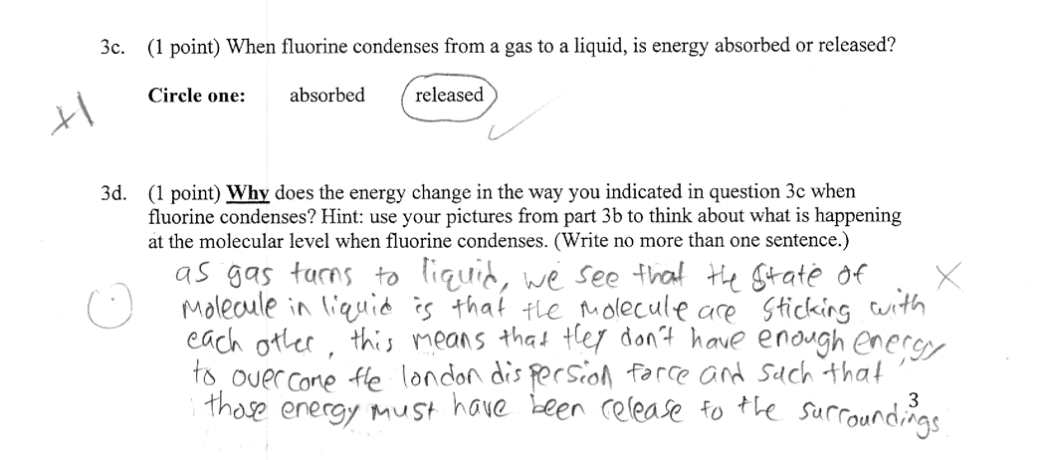 3c. (1 point) When fluorine condenses from a gas to a liquid, is energy absorbed or released?
Circle one: absorbed released
+1
3d. (1 point) Why does the energy change in the way you indicated in question 3c when
fluorine condenses? Hint: use your pictures from part 3b to think about what is happening
at the molecular level when fluorine condenses. (Write no more than one sentence.)
as gas turns to liquid, we see that the state of
molecule in liquid is that the molecule are sticking with
each other, this means that they don't have enough energy
to overcome the london dispersion force and such that
those energy must have been release to the surroundings
3